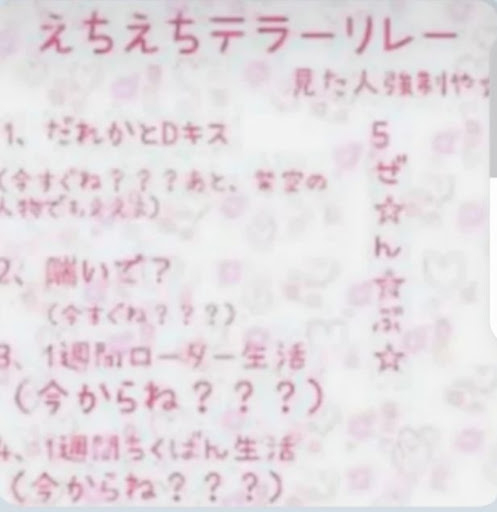 えちえちテラーリレー
見た人強制やっ
1、だれかとDキス
(今すぐね？？？あと、架空の
人物でもええよ)
2、喘いで？
(今すぐね？？？)
3、1週間ローター生活
(今からね？？？)
4、1週間ちくばん生活
(今からね？？？)
5
ぜ
☆
ん
☆
ぶ
☆